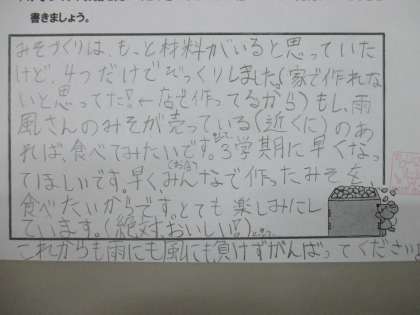 書きましょう。
みそづくりは、もっと材料がいると思っていた
けど、4つだけでびっくりしました。(家で作れな
いと思ってた!←店で作ってるから)もし、雨
風さんのみそが売っている(近くに)のあ
れば、食べてみたいです。3学期に早くなっ
てほしいです。早くみんなで作ったみそを
食べたいからです。とても楽しみにし
ています。(絶対、おいしい!)
これからも雨にも風にも負けずがんばってください!